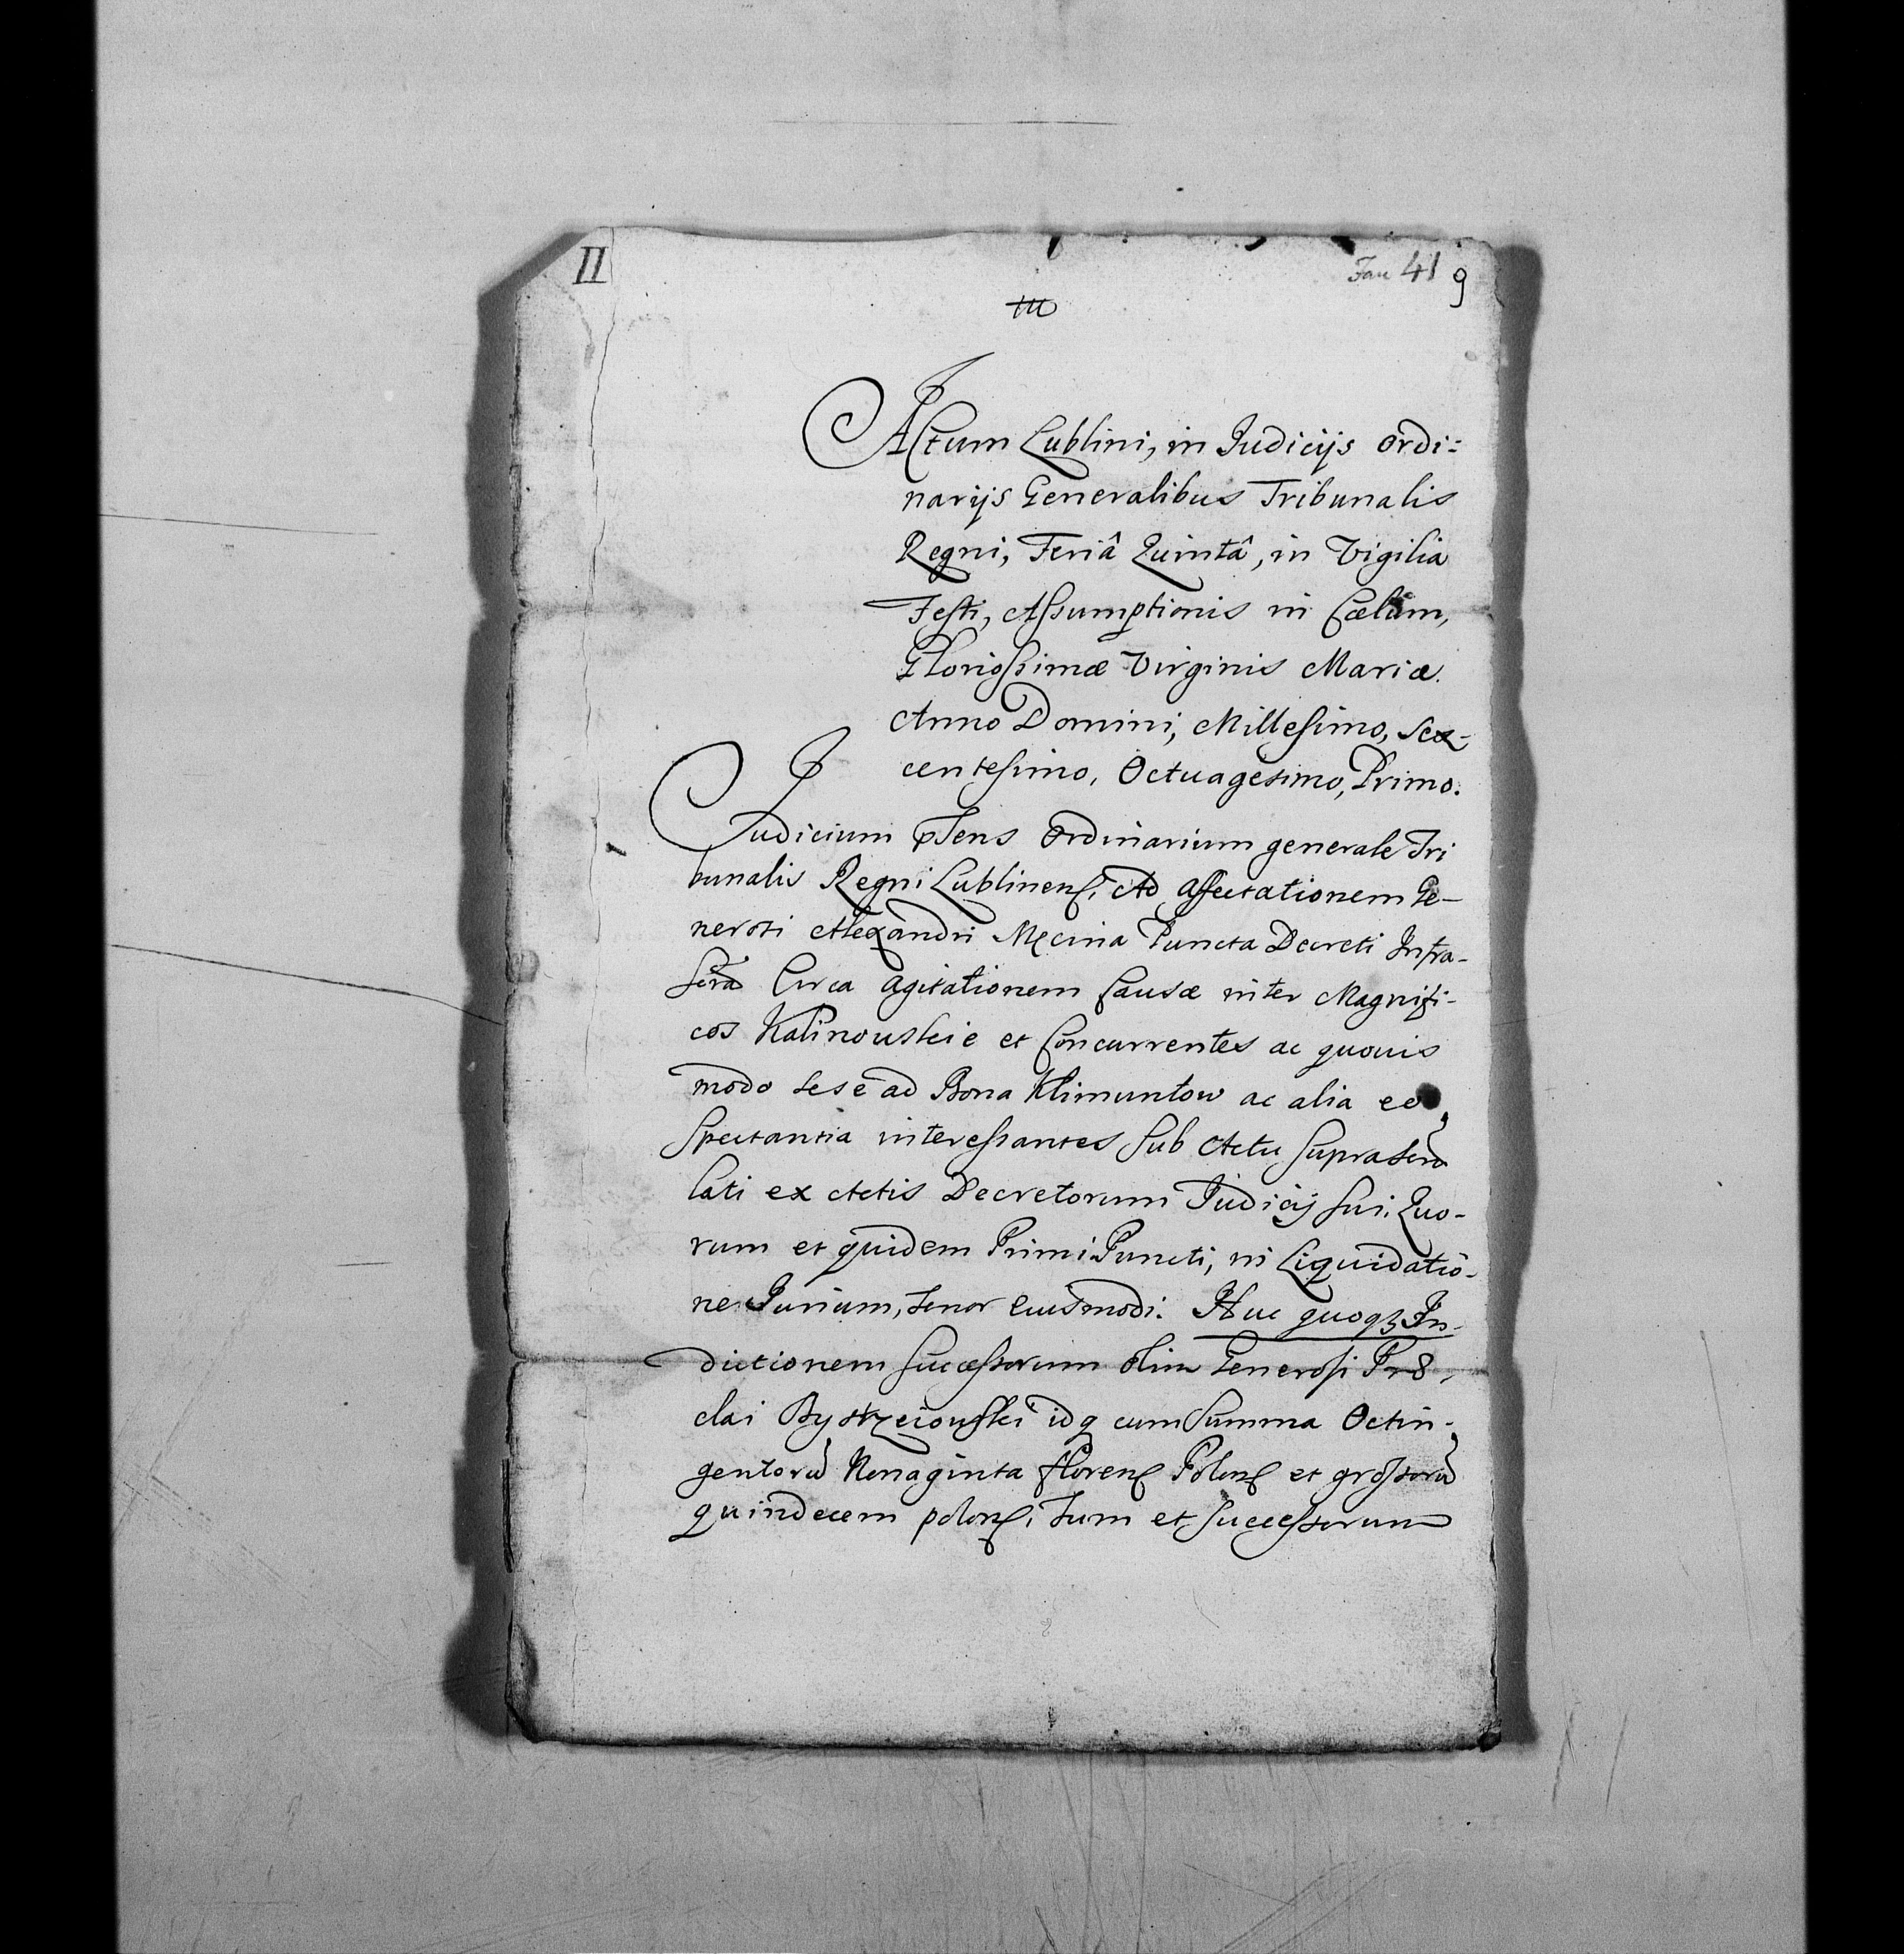 II
Fau 41 9
III
Actum Lublini, in Judicijs ordi:
narijs Generalibus Tribunalis
Regni, Feriâ Quintâ, in Vigilia
Festi, Assumptionis in Cælum,
Gloriossimæ Virginis Mariæ.
Anno Domini, Millesimo, sex-
centesimo, Octuagesimo, Primo.
Judicium pñens Ordinarium generale Tri
bunalis Regni Lublinens, Ad affectationem Ge-
nerosi Alexandri Mecina Puncta Decreti Infra-
scrã Circa agitationem Causæ inter Magnifi-
cos Kalinouskie et Concurrentes ac quouis
modo sese ad Bona Klimuntow ac alia eo
Spectantia interessantes sub Actu suprascrõ
lati ex Actis Decretorum Judicij sui. Quo-
rum et quidem Primi Puncti, in Liquidatio-
ne Jurium, tenor eiusmodi. Huc quoqȝ In-
dictionem successorum olim Generosi Pro-
clai Bystrzeiouski idq cum Summa Octin-
gentorũ Nonaginta florens Polons et grossorũ
quindecem polons, tum et successorum